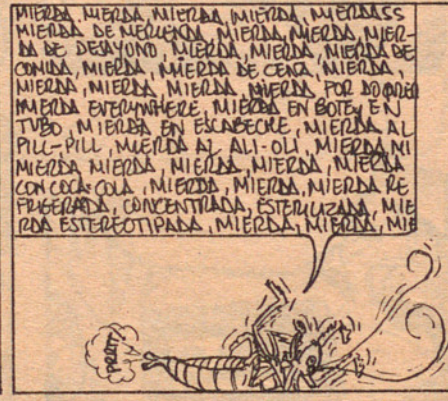 MIERDA, MIERDA, MIERDA, MIERDA, MIERDASS
MIERDA DE MERIENDA, MIERDA, MIERDA, MIER-
DA DE DESAYUNO, MIERDA, MIERDA, MIERDA DE
COMIDA, MIERDA, MIERDA DE CENA, MIERDA,
MIERDA, MIERDA MIERDA, MIERDA POR DOQUIER
MIERDA EVERYWHERE, MIERDA EN BOTE, EN
TUBO, MIERDA EN ESCABECHE, MIERDA AL
PILL-PILL, MIERDA AL ALI-OLI, MIERDA, MI
MIERDA MIERDA, MIERDA, MIERDA, MIERDA
CON COCA-COLA, MIERDA, MIERDA, MIERDA RE
FRIGERADA, CONCENTRADA, ESTERILIZADA, MIE
RDA ESTEREOTIPADA, MIERDA, MIERDA, MIE
PRRT!